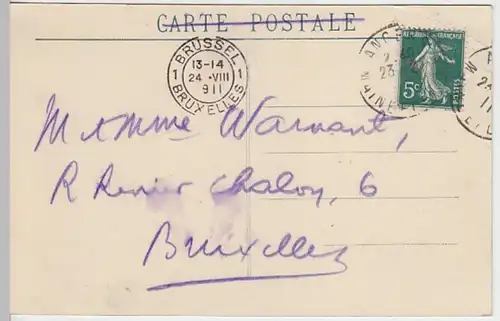 CARTE POSTALE
BRÜSSEL
1 13-14 1
24 ·VIII
911
BRUXELLES
RÉPUBLIQUE FRANÇAISE
5c
POSTES
M & Mme Warnant,
R Renier Chalon, 6
Bruxelles